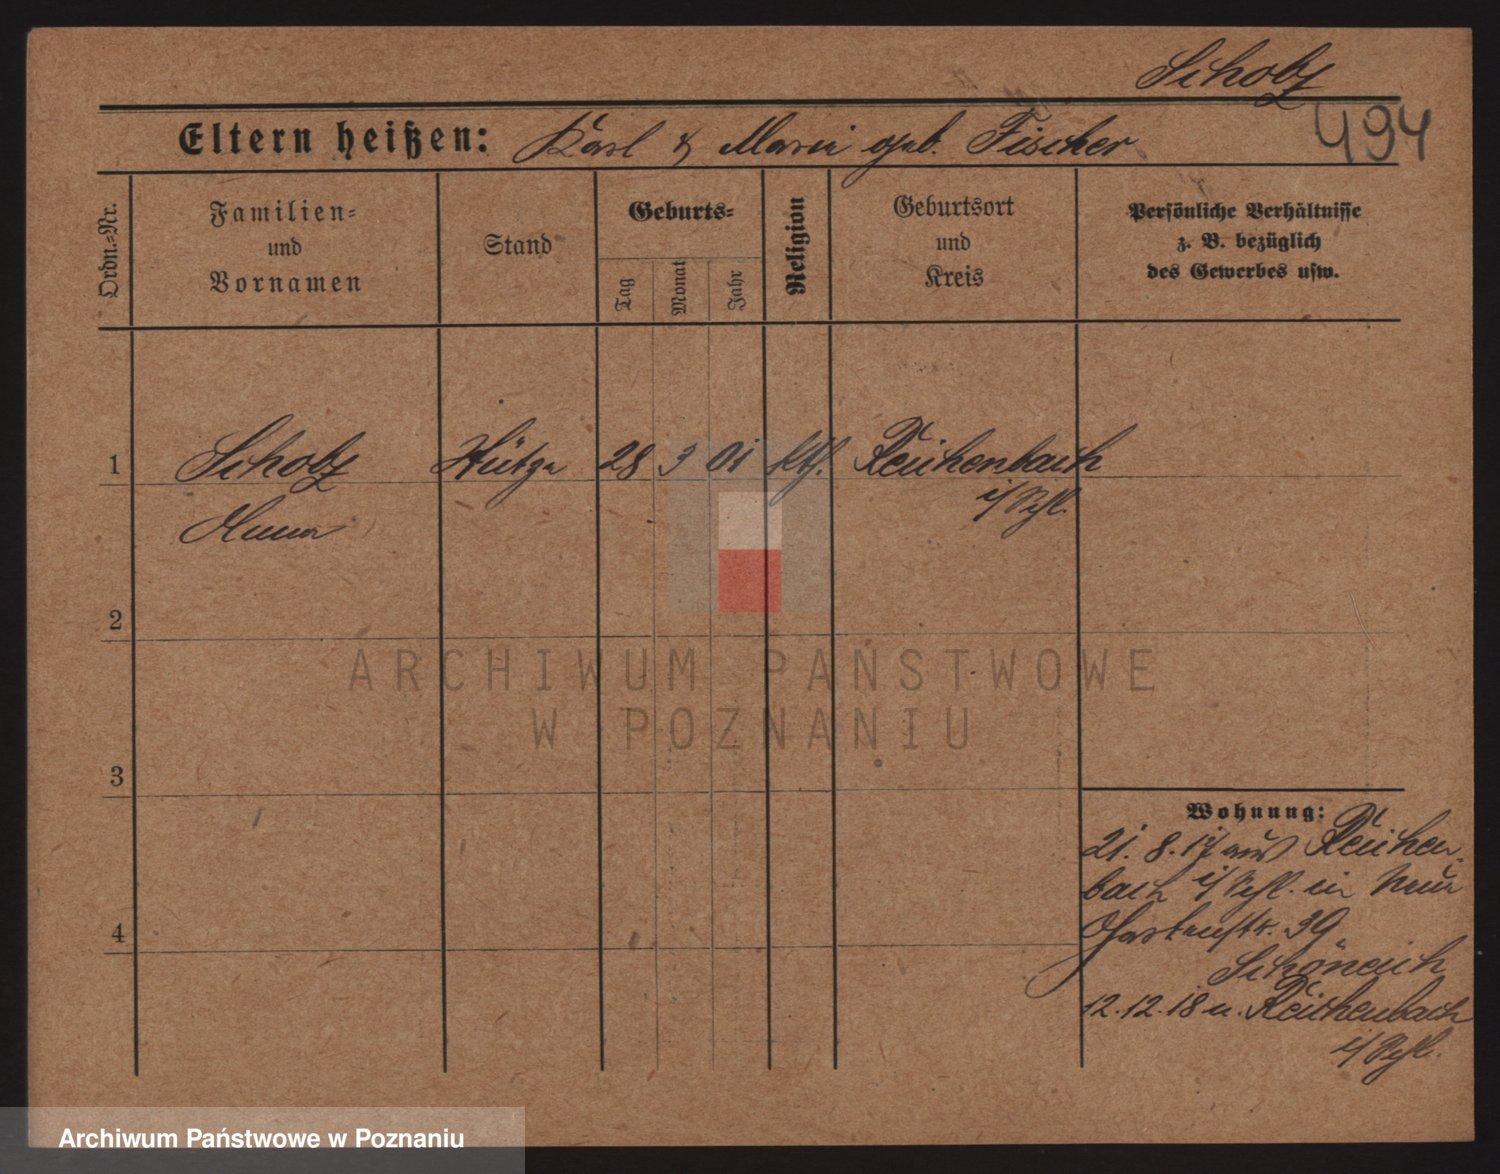 Scholz
494
Eltern heißen: Karl & Marie geb. Fischer
Ordn.=Nr.
Familien=
und
Vornamen
Stand
Geburts=
Tag
Monat
Jahr
Religion
Geburtsort
und
Kreis
Persönliche Verhältnisse
z. B. bezüglich
des Gewerbes usw.
1 Scholz 28 3 01 Kth. Reichenbach
i/Schl.
2
3
4
Wohnung:
21. 8. 17 aus Reichen-
bach i/Schl. in
Gartenstr. 39
Schöneich
12.12.18 n. Reichenbach
i/Schl.
ARCHIWUM PAŃSTWOWE
W POZNANIU
Archiwum Państwowe w Poznaniu